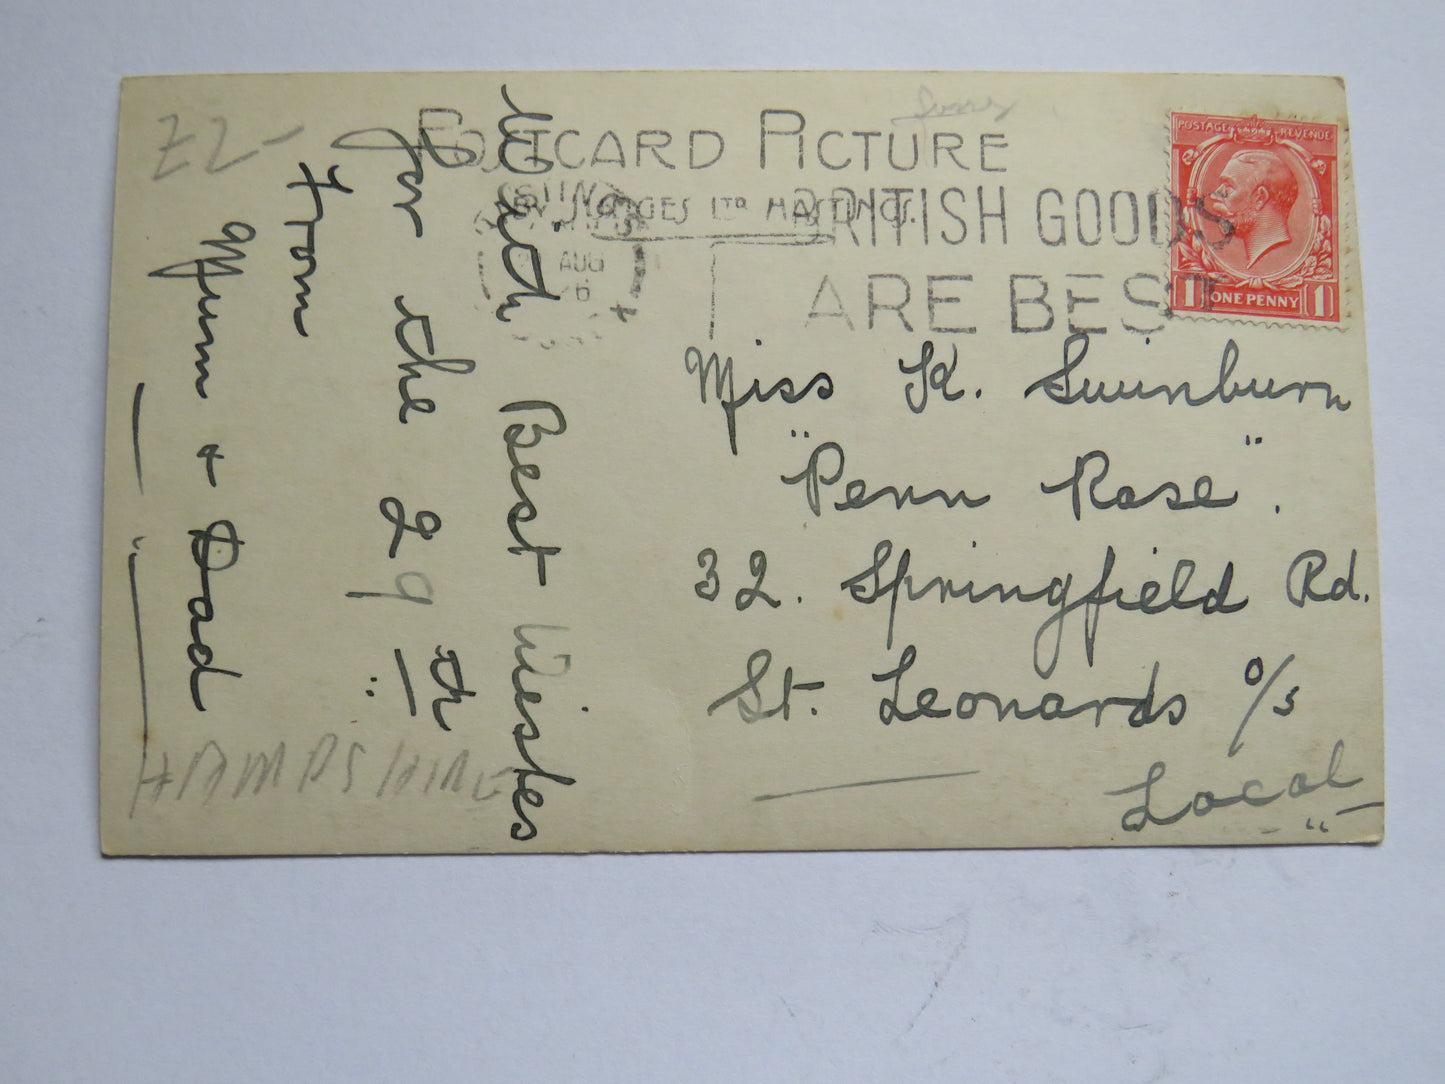 POSTCARD PICTURE
BY JUDGES LTD HASTINGS.
BRITISH GOODS
ARE BEST
AUG
POSTAGE REVENUE
1 ONE PENNY 1
£2-
With Best Wishes
for the 29th
From
Mum + Dad
HAMPSHIRE
Miss K. Swinburn
"Penn Rose".
32. Springfield Rd.
St. Leonards o/s
Local